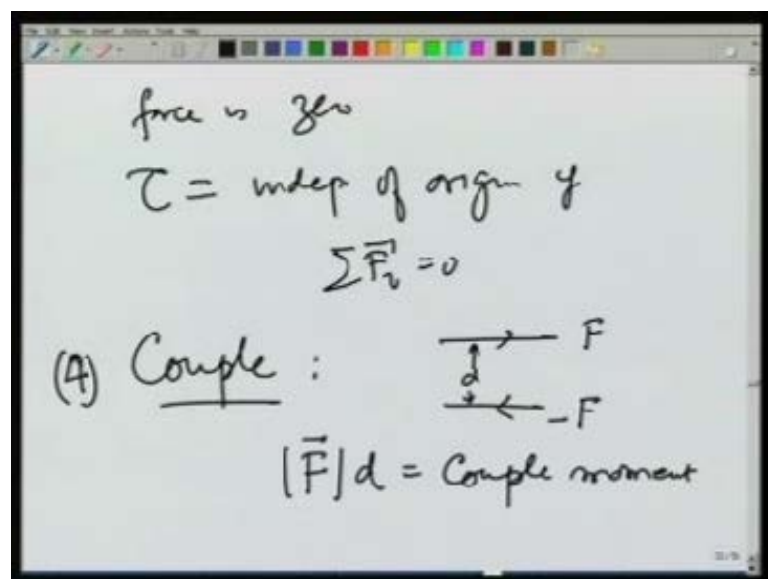 force is zero
τ = indep of origin if
∑F⃗ᵢ = 0
(4) Couple :
F
d
-F
|F⃗|d = Couple moment